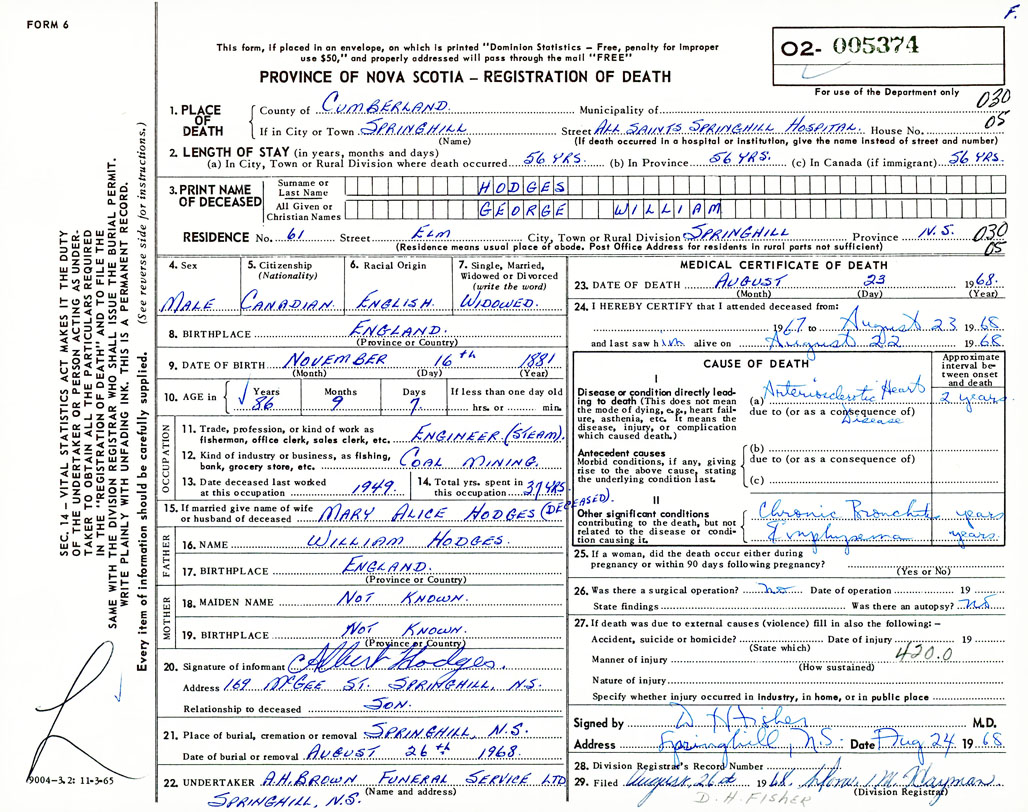 FORM 6
F.
This form, if placed in an envelope, on which is printed "Dominion Statistics – Free, penalty for improper
use $50," and properly addressed will pass through the mail "FREE"
PROVINCE OF NOVA SCOTIA – REGISTRATION OF DEATH
02- 005374
For use of the Department only
030
05
1. PLACE OF DEATH
County of CUMBERLAND. Municipality of
If in City or Town SPRINGHILL Street ALL SAINTS SPRINGHILL HOSPITAL. House No.
(Name) (If death occurred in a hospital or institution, give the name instead of street and number)
2. LENGTH OF STAY (in years, months and days)
(a) In City, Town or Rural Division where death occurred 56 YRS. (b) In Province 56 YRS. (c) In Canada (if immigrant) 56 YRS.
3. PRINT NAME OF DECEASED
Surname or Last Name HODGES
All Given or Christian Names GEORGE WILLIAM
RESIDENCE No. 61 Street ELM City, Town or Rural Division SPRINGHILL Province N.S. 030
(Residence means usual place of abode. Post Office Address for residents in rural parts not sufficient) 05
4. Sex
MALE
5. Citizenship
(Nationality)
CANADIAN.
6. Racial Origin
ENGLISH.
7. Single, Married,
Widowed or Divorced
(write the word)
WIDOWED.
8. BIRTHPLACE ENGLAND.
(Province or Country)
9. DATE OF BIRTH NOVEMBER 16th 1881
(Month) (Day) (Year)
10. AGE in Years 86 Months 9 Days 7. If less than one day old
hrs. or min.
OCCUPATION
11. Trade, profession, or kind of work as
fisherman, office clerk, sales clerk, etc. ENGINEER (STEAM).
12. Kind of industry or business, as fishing,
bank, grocery store, etc. COAL MINING.
13. Date deceased last worked
at this occupation 1949.
14. Total yrs. spent in
this occupation 37 YRS.
15. If married give name of wife
or husband of deceased MARY ALICE HODGES (DECEASED).
FATHER
16. NAME WILLIAM HODGES.
17. BIRTHPLACE ENGLAND.
(Province or Country)
MOTHER
18. MAIDEN NAME NOT KNOWN.
19. BIRTHPLACE NOT KNOWN.
(Province or Country)
20. Signature of informant Albert Hodges.
Address 169 McGEE ST. SPRINGHILL, N.S.
Relationship to deceased SON.
21. Place of burial, cremation or removal SPRINGHILL, N.S.
Date of burial or removal AUGUST 26th 1968.
22. UNDERTAKER A.H. BROWN FUNERAL SERVICE LTD
(Name and address)
SPRINGHILL, N.S.
MEDICAL CERTIFICATE OF DEATH
23. DATE OF DEATH AUGUST 23 1968.
(Month) (Day) (Year)
24. I HEREBY CERTIFY that I attended deceased from:
1967 to August 23 1968
and last saw him alive on August 22 1968
CAUSE OF DEATH
Approximate
interval be-
tween onset
and death
I
Disease or condition directly lead-
ing to death (This does not mean
the mode of dying, e.g., heart fail-
ure, asthenia, etc. It means the
disease, injury, or complication
which caused death.)
(a) Arteriosclerotic Heart 2 years
due to (or as a consequence of)
Disease
Antecedent causes
Morbid conditions, if any, giving
rise to the above cause, stating
the underlying condition last.
(b)
due to (or as a consequence of)
(c)
II
Other significant conditions
contributing to the death, but not
related to the disease or condi-
tion causing it.
Chronic Bronchitis years
Emphysema years.
25. If a woman, did the death occur either during
pregnancy or within 90 days following pregnancy?
(Yes or No)
26. Was there a surgical operation? no Date of operation 19
State findings Was there an autopsy? no
27. If death was due to external causes (violence) fill in also the following: –
Accident, suicide or homicide? Date of injury 19
(State which) 420.0
Manner of injury
(How sustained)
Nature of injury
Specify whether injury occurred in industry, in home, or in public place
Signed by D H Fisher M.D.
Address Springhill, N.S. Date Aug 24 1968.
28. Division Registrar's Record Number
29. Filed August 26th 1968. M. Hayman
(Division Registrar)
D. H. FISHER
SEC. 14 – VITAL STATISTICS ACT MAKES IT THE DUTY
OF THE UNDERTAKER OR PERSON ACTING AS UNDER-
TAKER TO OBTAIN ALL THE PARTICULARS REQUIRED
IN THE "REGISTRATION OF DEATH" AND TO FILE THE
SAME WITH THE DIVISION REGISTRAR WHO SHALL ISSUE THE BURIAL PERMIT.
WRITE PLAINLY WITH UNFADING INK. THIS IS A PERMANENT RECORD.
Every item of information should be carefully supplied. (See reverse side for instructions.)
9004-3.2: 11-3-65